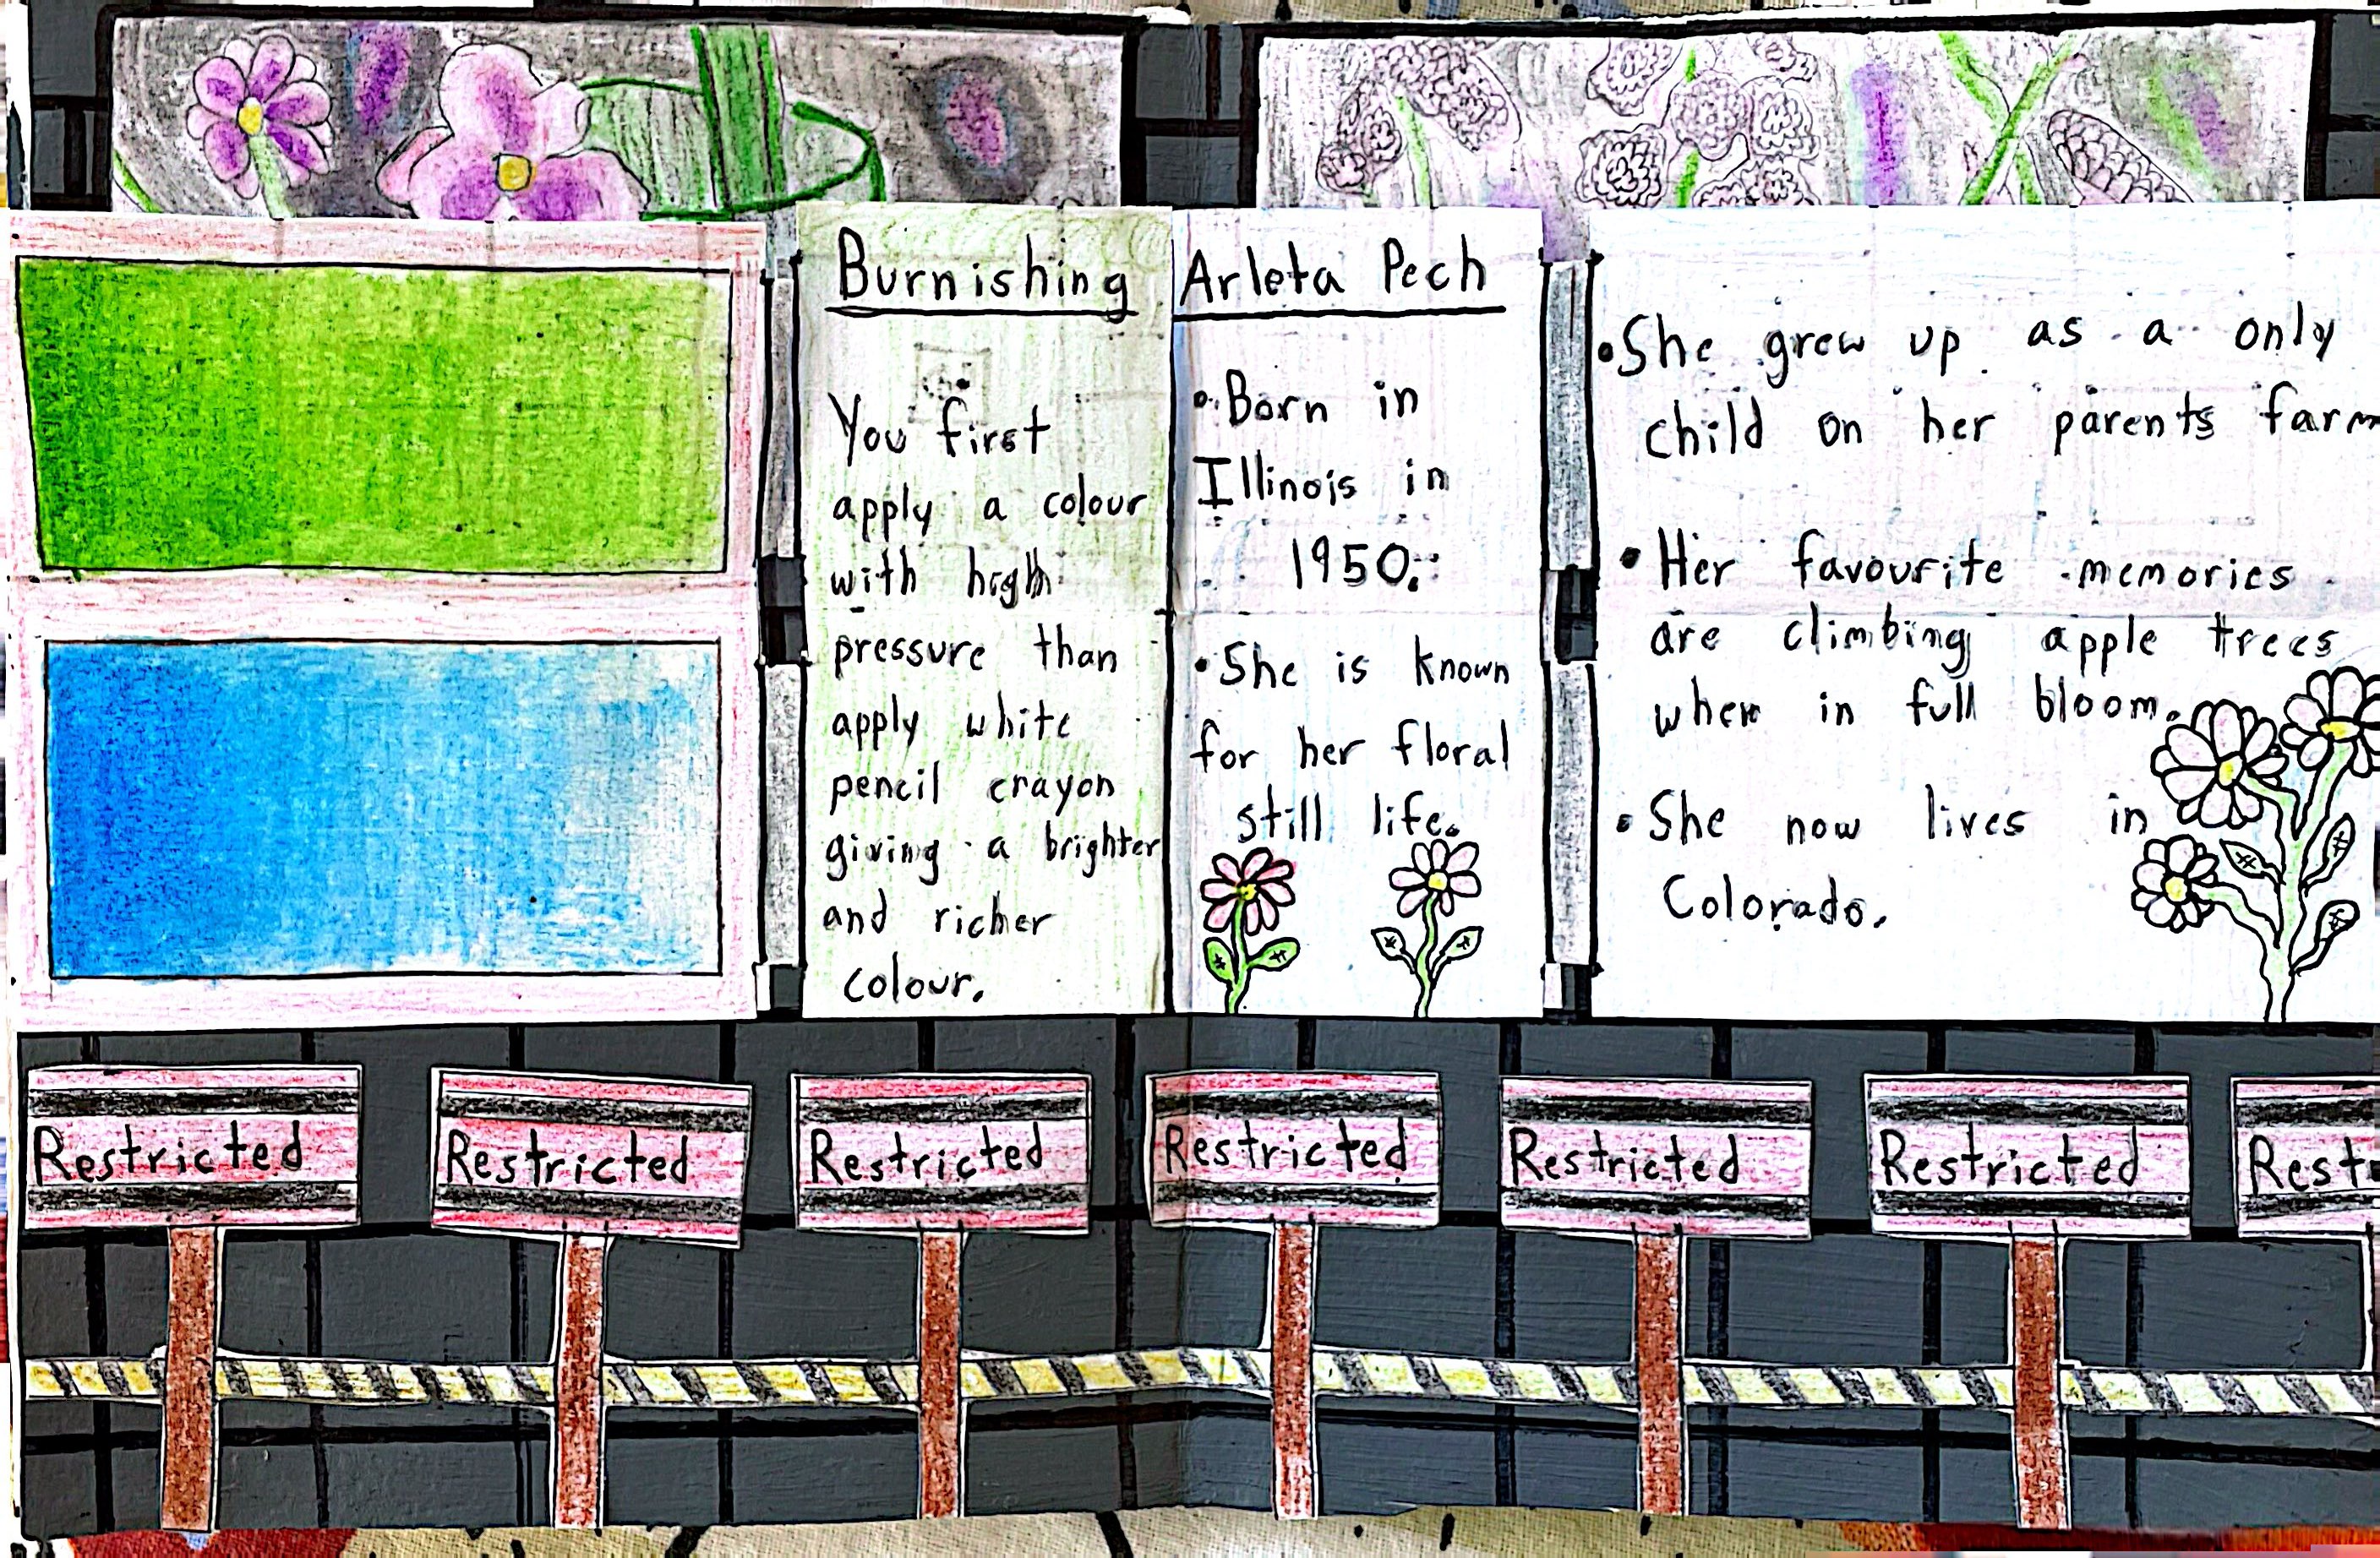 Burnishing
You first
apply a colour
with high
pressure than
apply white
pencil crayon
giving a brighter
and richer
colour.
Arleta Pech
• Born in
Illinois in
1950.
• She is known
for her floral
still life.
• She grew up as a only
child on her parents farm
• Her favourite memories
are climbing apple trees
when in full bloom.
• She now lives in
Colorado.
Restricted
Restricted
Restricted
Restricted
Restricted
Restricted
Rest